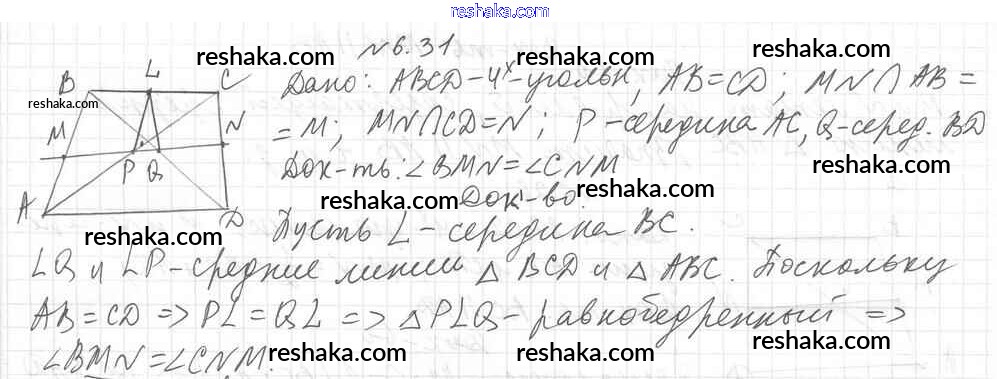 reshaka.com
№6.31
Дано: ABCD-4х-угольн, AB=CD; MN∩AB=
=M; MN∩CD=N; P-середина AC, Q-серед. BD
Док-ть: ∠BMN=∠CNM
Док-во.
Пусть L-середина BC.
LQ и LP-средние линии △BCD и △ABC. Поскольку
AB=CD => PL=QL => △PLQ-равнобедренный =>
∠BMN=∠CNM.
B L C
M N
P Q
A D
reshaka.com
reshaka.com
reshaka.com
reshaka.com
reshaka.com
reshaka.com
reshaka.com
reshaka.com
reshaka.com
reshaka.com
reshaka.com
reshaka.com